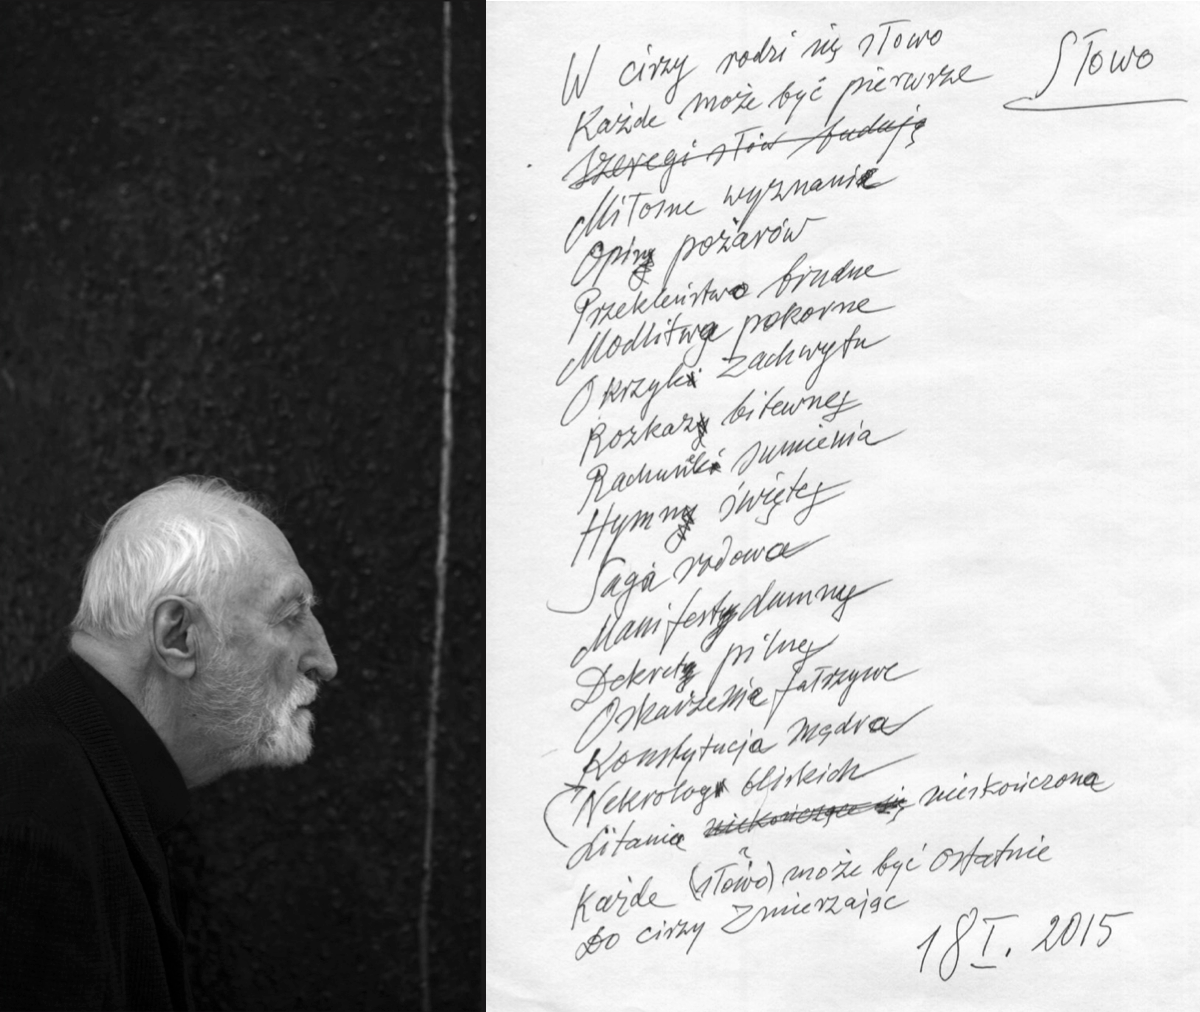 Słowo
W ciszy rodzi się słowo
Każde może być pierwsze
Szeregi słów budują
Miłosne wyznanie
Opisy pożarów
Przekleństwo brudne
Modlitwa pokorne
Okrzyki zachwytu
Rozkazy bitewnej
Rachunki sumienia
Hymny świętej
Saga rodowa
Manifesty dumny
Dekrety pilny
Oskarżenie fałszywe
Konstytucja mądra
Nekrologi bliskich
Litania niekończące się nieskończona
Każde (słowo) może być ostatnie
Do ciszy zmierzając
18 I. 2015